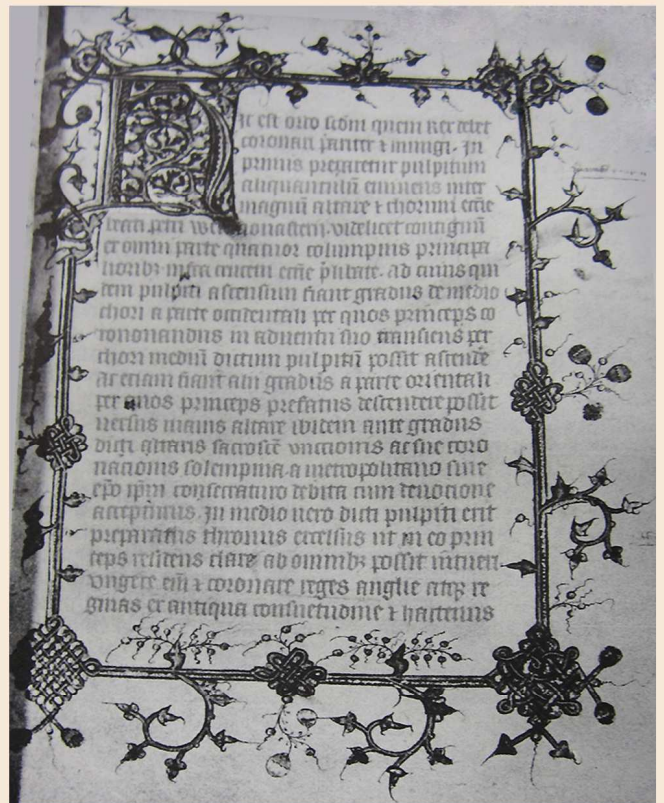 Hic est ordo scdm quem Rex debet
coronari pariter ⁊ inungi. In
primis preparetur pulpitum
aliquantulū eminens inter
magnū altare ⁊ chorum eccĺie
beati petri contiguū
ex omni parte quatuor columpnis principa
lioribȝ infra crucem eccĺie p̄libate. ad cuius qui
dem pulpiti ascensum fiant gradus de medio
chori a parte occidentali per quos princeps co
ronandus in aduentu suo transiens per
chori mediū dictum pulpitū possit ascende
ac etiam fiant alii gradus a parte orientali
per quos princeps prefatus descendere possit
uersus maius altare ibidem ante gradus
dicti altaris sacrosc̄e unctionis ac sue coro
nacionis solempnia a metropolitano siue
ep̄o ip̄m consecraturo debita cum deuocione
accepturus. In medio uero dicti pulpiti erit
preparatus thronus excelsus ut in eo prin
ceps residens clare ab omnibȝ possit intueri
ungere eū ⁊ coronare reges anglie atqȝ re
ginas ex antiqua consuetudine ⁊ hactenus